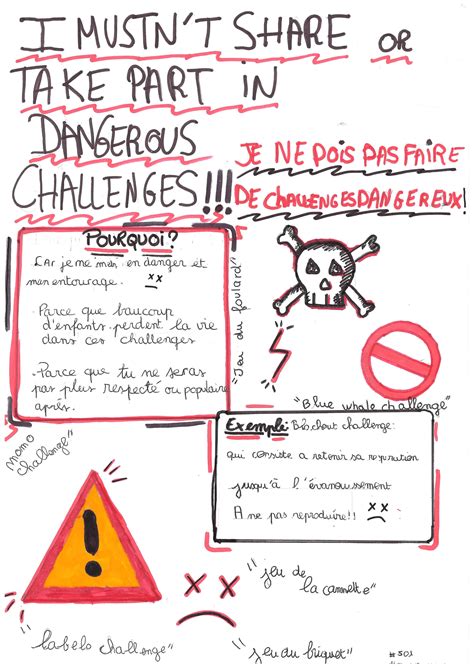 I MUSTN'T SHARE OR
TAKE PART IN
DANGEROUS
CHALLENGES!!!
JE NE DOIS PAS FAIRE
DE CHALLENGES DANGEREUX!
POURQUOI?
. Car je me mets en danger et
mon entourage.
. Parce que beaucoup
d'enfants perdent la vie
dans ces challenges
. Parce que tu ne seras
pas plus respecté ou populaire
après.
"Jeu du foulard"
"Blue whale challenge"
"momo
challenge"
Exemple: challenge:
qui consiste a retenir sa respiration
jusqu'à l'évanouissement
A ne pas reproduire!!
"jeu de
la cannette"
"Labelo challenge"
"jeu du briquet"
#501